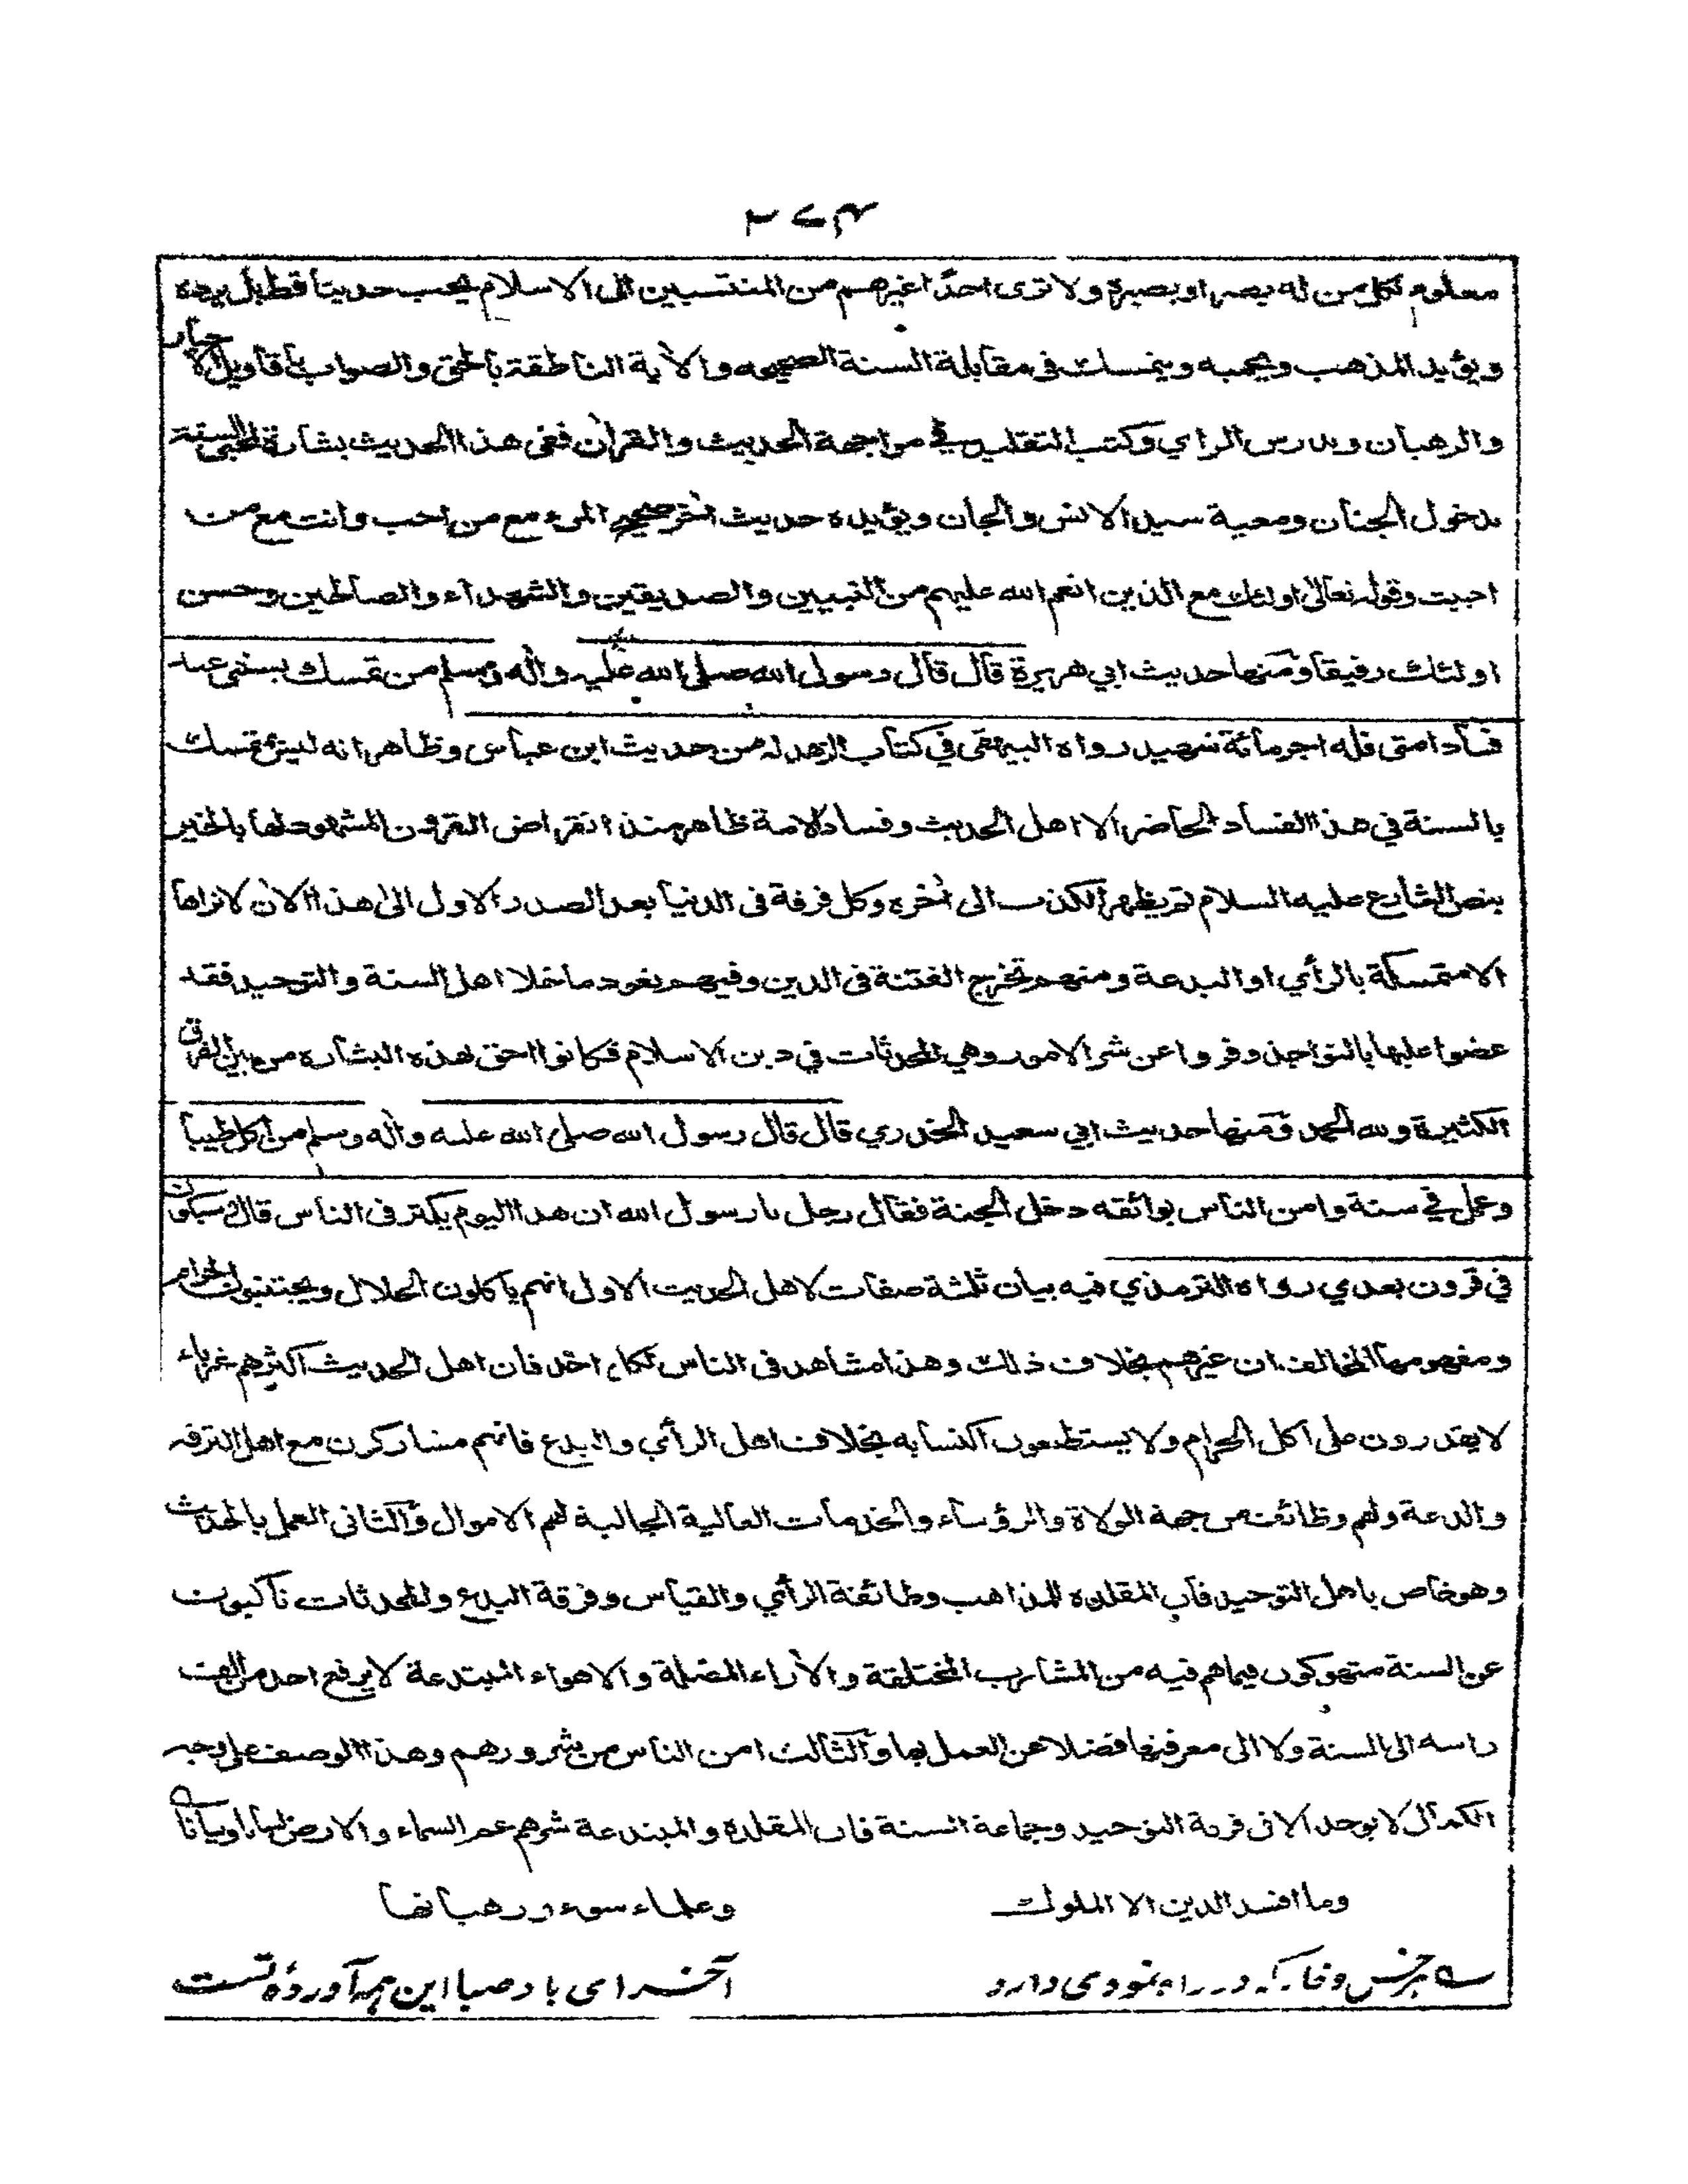 ٢٧٣
معلوم لكل من له بصر او بصيرة ولا ترى احدًا غيرهم من المنتسبين الى الاسلام يحب حديثا قط بل يرده
ويؤيد المذهب ويحبه ويتمسك في مقابلة السنة الصحيحه والآية الناطقة بالحق والصواب باقاويل الاحبار
والرهبان وبدارس الراي وكتب التقليد في مواجهة الحديث والقرآن ففى هذا الحديث بشارة لمحبى السنة
بدخول الجنان ومعية سيد الانس والجان ويؤيده حديث آخر صحيح المرء مع من احب وانت مع من
احببت وقوله تعالى اولئك مع الذين انعم الله عليهم من النبيين والصديقين والشهداء والصالحين وحسن
اولئك رفيقا ومنها حديث ابي هريرة قال قال رسول الله صلى الله عليه وآله وسلم من تمسك بسنتى عند
فساد امتى فله اجر مائة شهيد رواه البيهقى في كتاب الزهد له من حديث ابن عباس وظاهر انه ليس تمسك
بالسنة في هذا الفساد الحاضر الا اهل الحديث وفساد الامة ظاهر منذ انقراض القرون المشهود لها بالخير
بنص الشارع عليه السلام ثم يظهر الكذب الى آخره وكل فرقة فى الدنيا بعد الصدر الاول الى هذا الآن لا نراها
الا متمسكة بالرأي او البدعة ومنهم تخرج الفتنة فى الدين وفيهم تعود ما خلا اهل السنة والتوحيد فقد
عضوا عليها بالنواجذ وفروا عن شر الامور وهي المحدثات في دين الاسلام فكانوا احق بهذه البشاره من بين الفرق
الكثيرة ولله الحمد ومنها حديث ابي سعيد الخدري قال قال رسول الله صلى الله عليه وآله وسلم من اكل طيبا
وعمل في سنة وامن الناس بوائقه دخل الجنة فقال رجل يا رسول الله ان هذا اليوم يكثر فى الناس قال وسيكون
في قرون بعدي رواه الترمذي فيه بيان ثلثة صفات لاهل الحديث الاول انهم ياكلون الحلال ويجتنبون الحرام
ومفهومها المخالف ان غيرهم بخلاف ذلك وهذا مشاهد فى الناس لكل احد فان اهل الحديث اكثرهم غرباء
لا يقدرون على اكل الحرام ولا يستطيعون اكتسابه بخلاف اهل الرأي والبدع فانهم مشاركون مع اهل الترفه
والدعة ولهم وظائف من جهة الولاة والرؤساء والخدمات العالية الجالبة لهم الاموال والثانى العمل بالحديث
وهو خاص باهل التوحيد فان المقلدة للمذاهب وطائفة الرأي والقياس وفرقة البدع والمحدثات ناكبون
عن السنة متهوكون فيما هم فيه من المشارب المختلفة والآراء المضلة والاهواء المبتدعة لا يرفع احد من
راسه الى السنة ولا الى معرفتها فضلا عن العمل بها والثالث امن الناس من شرورهم وهذا الوصف على وجه
الكمال لا يوجد الا فى فرقة التوحيد وجماعة السنة فان المقلدة والمبتدعة شرهم عم السماء والارض لسانا وبيانا
وما افسد الدين الا الملوك وعلماء سوء ورهبانها
وفا كه در راه تو مى دارد آخر اى باد صبا اين همه آوردۀ تست